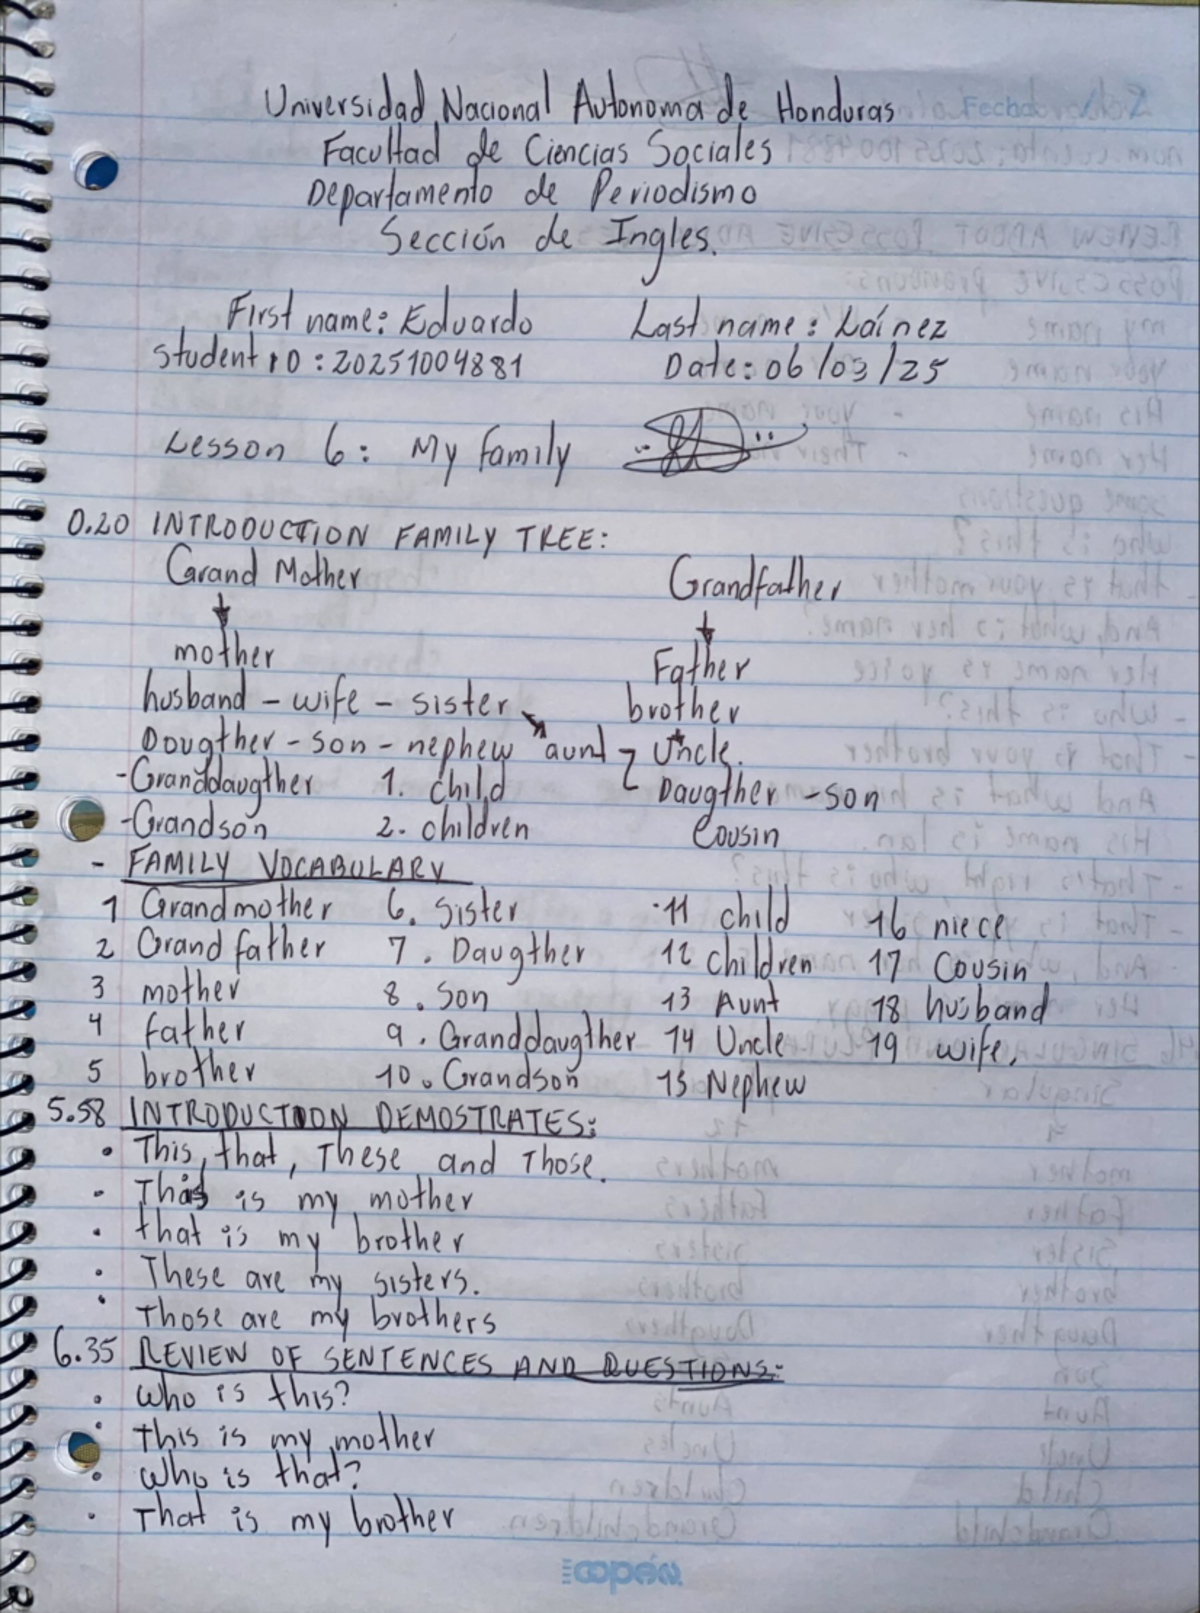 Universidad Nacional Autonoma de Honduras
Facultad de Ciencias Sociales
Departamento de Periodismo
Sección de Ingles.
First name: Eduardo Last name: Laínez
Student ID: 20251004881 Date: 06/03/25
Lesson 6: My family
0.20 INTRODUCTION FAMILY TREE:
Grand Mother Grandfather
mother Father
husband - wife - sister brother
Dougther - son - nephew aunt Uncle.
- Granddaugther 1. child Daugther - son
- Grandson 2. children Cousin
- FAMILY VOCABULARY
1 Grandmother 6. Sister 11 child 16 niece
2 Grand father 7. Daugther 12 children 17 Cousin
3 mother 8. Son 13 Aunt 18 husband
4 father 9. Granddaugther 14 Uncle 19 wife.
5 brother 10. Grandson 15 Nephew
5.58 INTRODUCTION DEMOSTRATES:
• This, that, These and Those.
- This is my mother
• that is my brother
• These are my sisters.
• Those are my brothers
6.35 REVIEW OF SENTENCES AND QUESTIONS:
• Who is this?
• This is my mother
• Who is that?
• That is my brother
copán